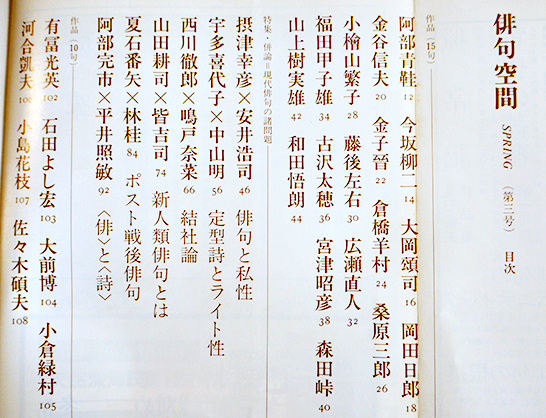 俳句空間 SPRING (第三号) 目次
作品(15句)
阿部青鞋 12 今坂柳二 14 大岡頌司 16 岡田日郎 18
金谷信夫 20 金子晉 22 倉橋羊村 24 桑原三郎 26
小檜山繁子 28 藤後左右 30 広瀬直人 32
福田甲子雄 34 古沢太穂 36 宮津昭彦 38 森田峠 40
山上樹実雄 42 和田悟朗 44
特集・併論=現代俳句の諸問題
摂津幸彦×安井浩司 46 俳句と私性
宇多喜代子×中山明 56 定型詩とライト性
西川徹郎×鳴戸奈菜 66 結社論
山田耕司×皆吉司 74 新人類俳句とは
夏石番矢×林桂 84 ポスト戦後俳句
阿部完市×平井照敏 92 〈俳〉と〈詩〉
作品(10句)
有冨光英 102 石田よし宏 103 大前博 104 小倉緑村 105
河合凱夫 106 小島花枝 107 佐々木碩夫 108